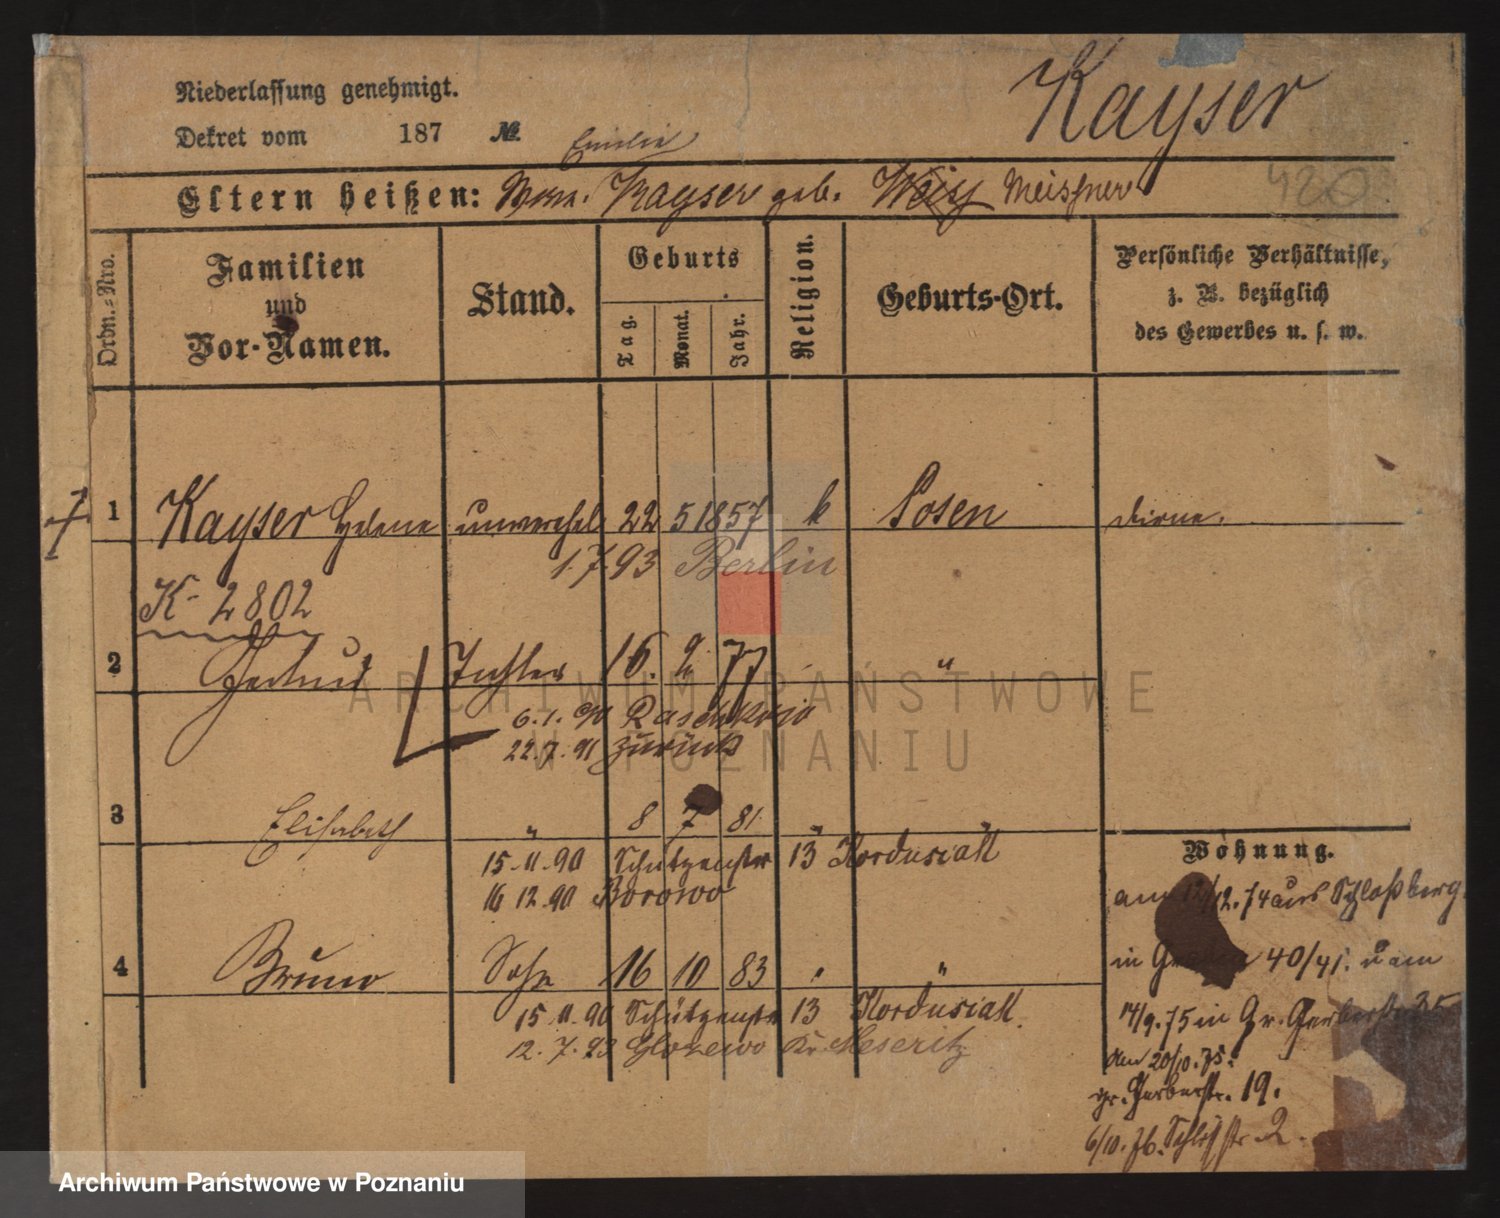 Niederlassung genehmigt.
Kayser
Dekret vom 187 №
Emilie
Eltern heißen: Kayser geb. Meissner
420
Ordn.-Nro.
Familien und Vor-Namen.
Stand.
Geburts
Tag.
Monat.
Jahr.
Religion.
Geburts-Ort.
Persönliche Verhältnisse,
z. B. bezüglich
des Gewerbes u. s. w.
1 Kayser Helene unverehel 22 5 1857 k Posen Dirne.
1.7.93 Berlin
K- 2802
2 Gertrud Tochter 16. 2 77 "
6.1.90 Raschkowo
22.7.91 zurück
3 Elisabeth " 8 7 81 "
15.11.90 Schützenstr 13 Kordusiak
16 12.90 Borowo
4 Bruno Sohn 16 10 83 " "
15.11.90 Schützenstr 13 Kordusiak
12.7.93 Kr Meseritz
Wohnung.
am 12/12.74 aus Schloßberg
in 40/41. u am
14/9.75 in Gr. Gerberstr 35
den 20/10.75.
gr. Gerberstr. 19.
6/10.76. Schloßstr 2.
ARCHIWUM PAŃSTWOWE
W POZNANIU
Archiwum Państwowe w Poznaniu